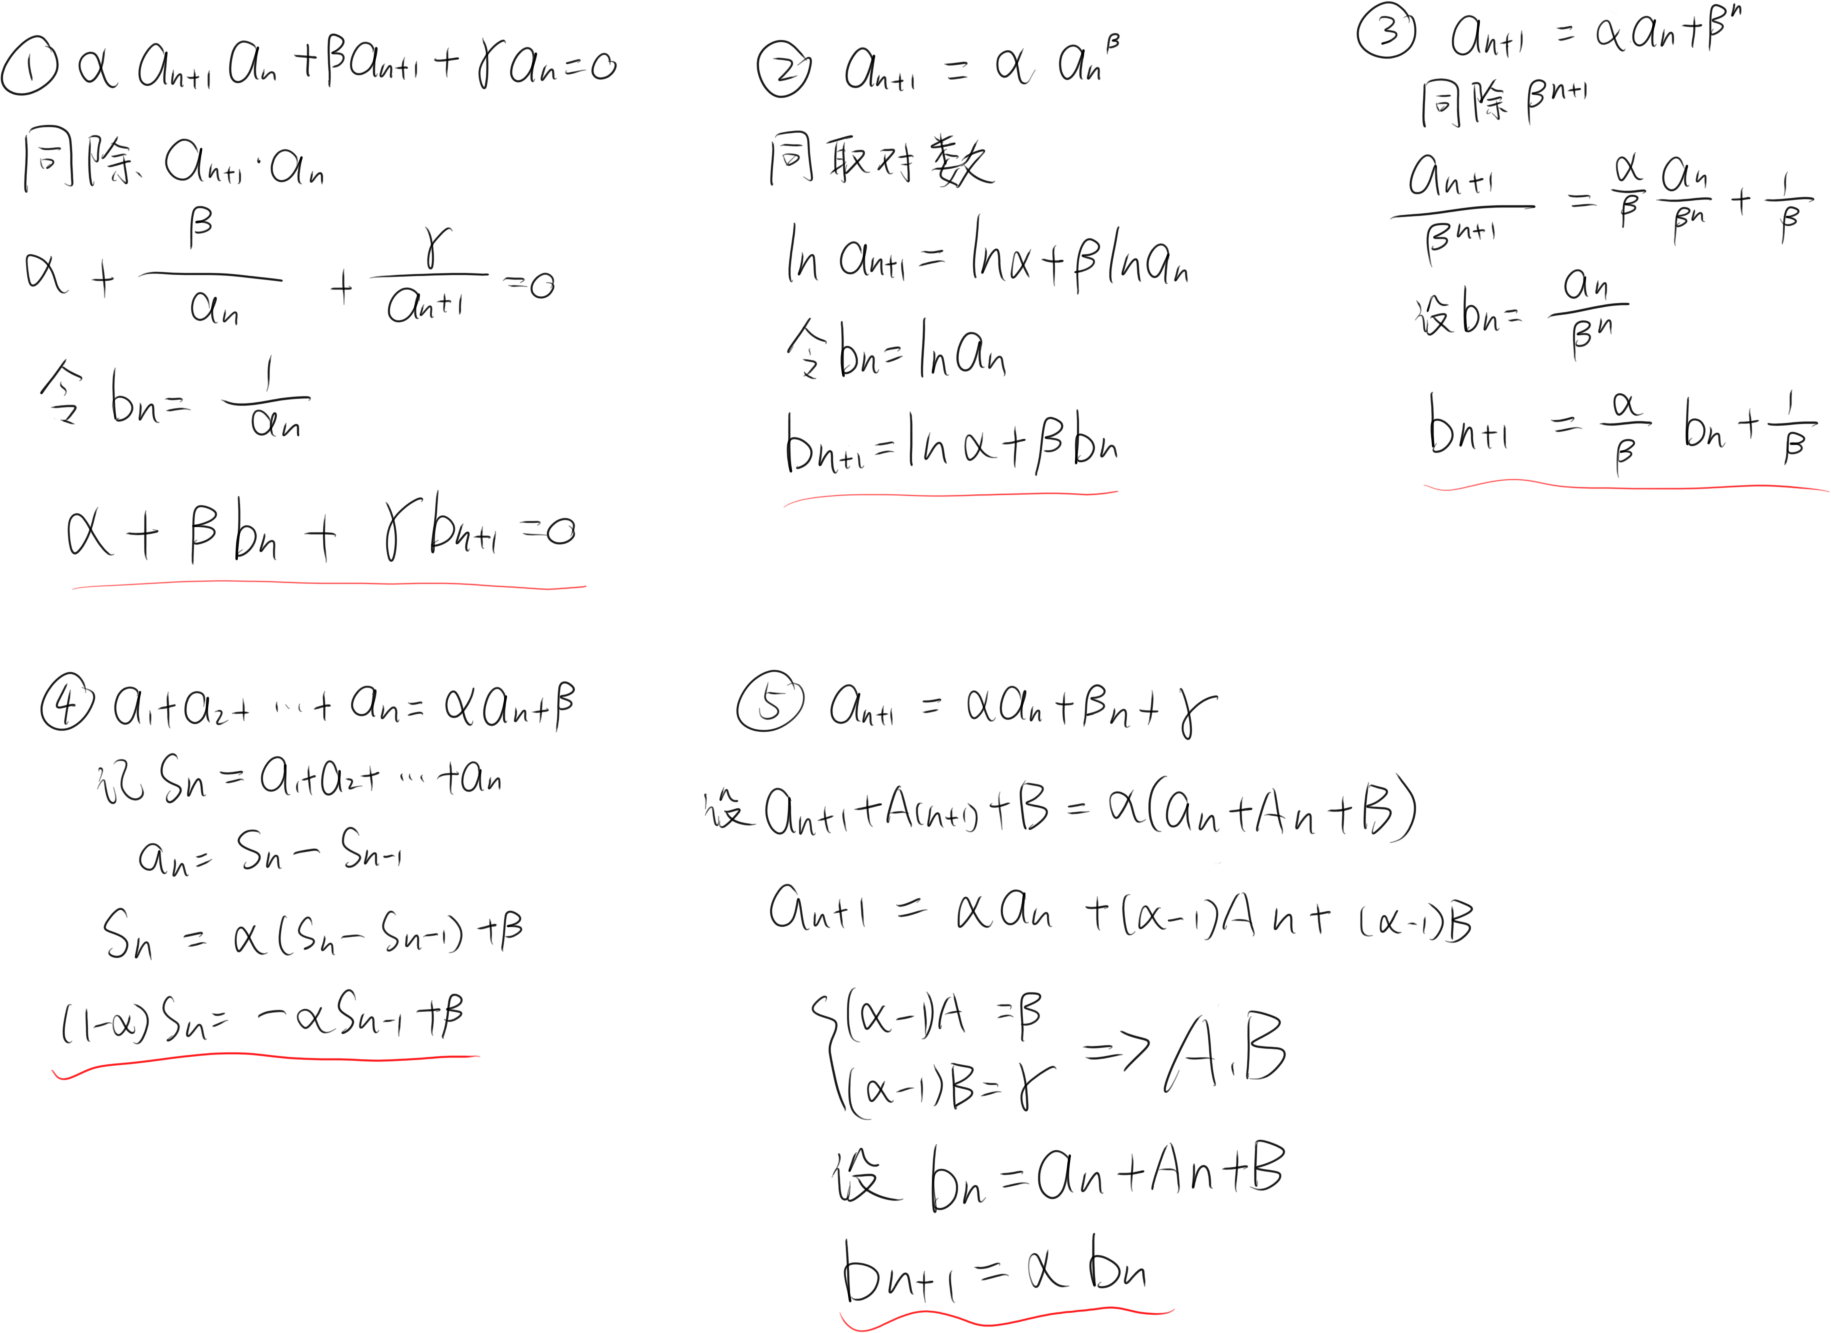 ① α aₙ₊₁ aₙ + β aₙ₊₁ + γ aₙ = 0
同除 aₙ₊₁ · aₙ
α + β/aₙ + γ/aₙ₊₁ = 0
令 bₙ = 1/aₙ
α + β bₙ + γ bₙ₊₁ = 0
② aₙ₊₁ = α aₙ^β
同取对数
ln aₙ₊₁ = ln α + β ln aₙ
令 bₙ = ln aₙ
bₙ₊₁ = ln α + β bₙ
③ aₙ₊₁ = α aₙ + βⁿ
同除 βⁿ⁺¹
aₙ₊₁/βⁿ⁺¹ = α/β aₙ/βⁿ + 1/β
设 bₙ = aₙ/βⁿ
bₙ₊₁ = α/β bₙ + 1/β
④ a₁ + a₂ + ⋯ + aₙ = α aₙ + β
记 Sₙ = a₁ + a₂ + ⋯ + aₙ
aₙ = Sₙ − Sₙ₋₁
Sₙ = α (Sₙ − Sₙ₋₁) + β
(1−α) Sₙ = −α Sₙ₋₁ + β
⑤ aₙ₊₁ = α aₙ + βn + γ
设 aₙ₊₁ + A(n+1) + B = α(aₙ + An + B)
aₙ₊₁ = α aₙ + (α−1)A n + (α−1)B
{(α−1)A = β
(α−1)B = γ => A.B
设 bₙ = aₙ + An + B
bₙ₊₁ = α bₙ